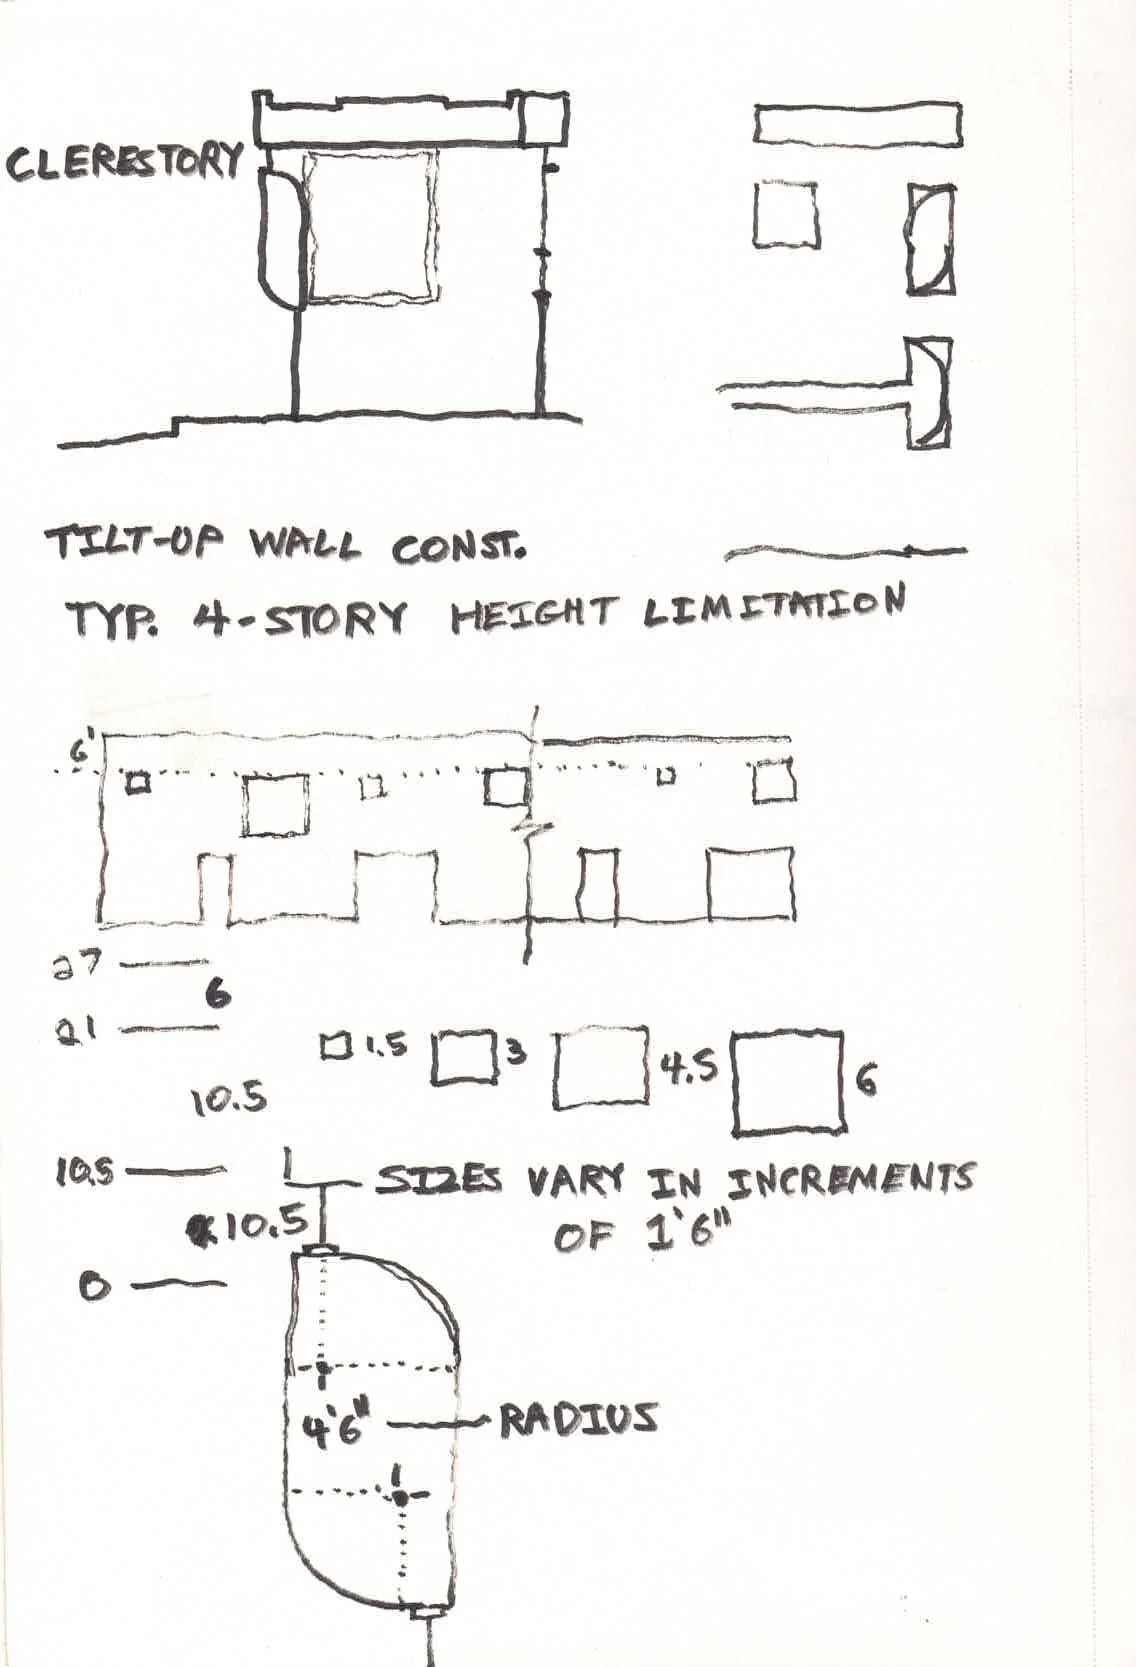 CLERESTORY
TILT-UP WALL CONST.
TYP. 4-STORY HEIGHT LIMITATION
6'
27
6
21
1.5
3
4.5
6
10.5
10.5
SIZES VARY IN INCREMENTS
OF 1'6"
10.5
0
4'6"
RADIUS